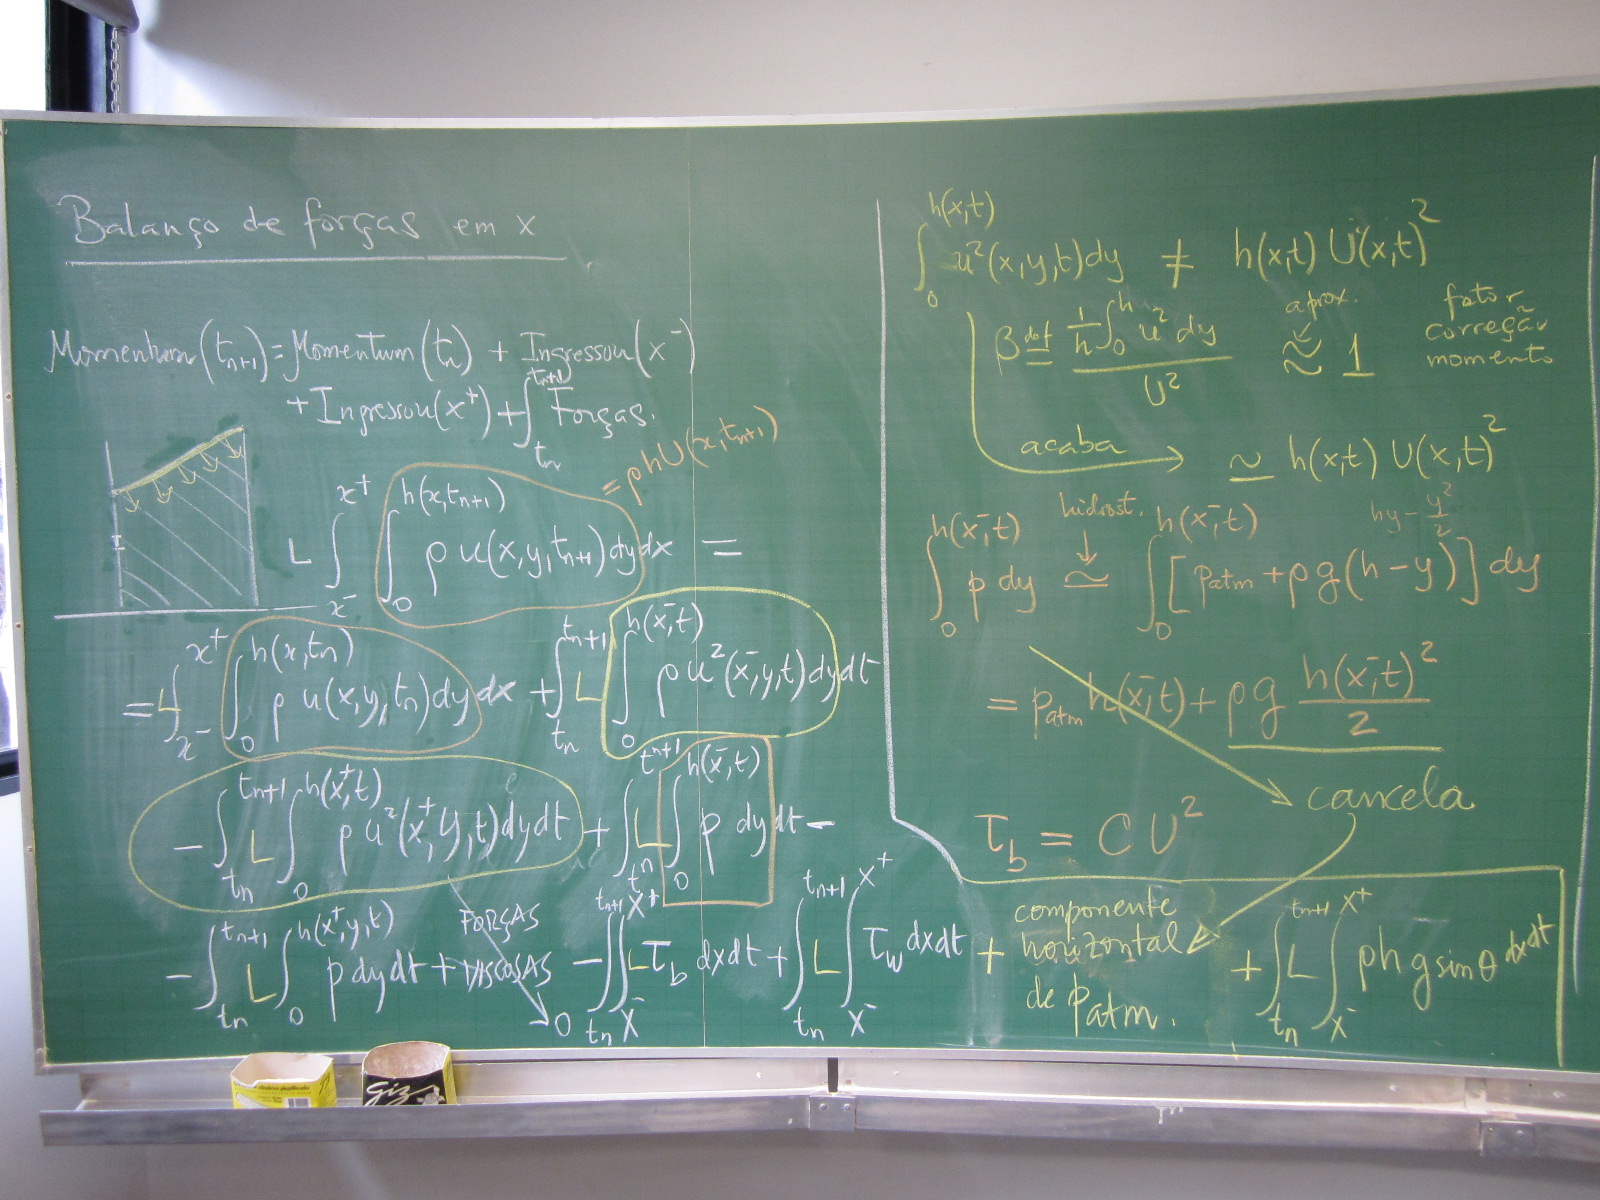 Balanço de forças em x
Momentum(t_{n+1}) = Momentum(t_n) + Ingressou(x^-)
+ Ingressou(x^+) + ∫_{t_n}^{t_{n+1}} Forças.
= ρhU(x,t_{n+1})
L ∫_{x^-}^{x^+} ∫_0^{h(x,t_{n+1})} ρ u(x,y,t_{n+1}) dy dx =
= L ∫_{x^-}^{x^+} ∫_0^{h(x,t_n)} ρ u(x,y,t_n) dy dx + ∫_{t_n}^{t_{n+1}} L ∫_0^{h(x^-,t)} ρ u^2(x^-,y,t) dy dt
- ∫_{t_n}^{t_{n+1}} L ∫_0^{h(x^+,t)} ρ u^2(x^+,y,t) dy dt + ∫_{t^n}^{t^{n+1}} L ∫_0^{h(x^-,t)} p dy dt -
- ∫_{t_n}^{t_{n+1}} L ∫_0^{h(x^+,y,t)} p dy dt + FORÇAS VISCOSAS 0 - ∫_{t_n}^{t_{n+1}} ∫_{x^-}^{x^+} L τ_b dx dt + ∫_{t_n}^{t_{n+1}} L ∫_{x^-}^{x^+} τ_w dx dt + componente horizontal de p_{atm}. + ∫_{t_n}^{t_{n+1}} L ∫_{x^-}^{x^+} ρ h g sin θ dx dt
∫_0^{h(x,t)} u^2(x,y,t) dy ≠ h(x,t) U(x,t)^2
β def= (1/h ∫_0^h u^2 dy) / U^2 ≈ 1
aprox.
fator
correção
momento
acaba → ≃ h(x,t) U(x,t)^2
hidrost.
hy - y^2/2
∫_0^{h(x^-,t)} p dy ≃ ∫_0^{h(x^-,t)} [p_{atm} + ρg(h-y)] dy
= p_{atm} h(x^-,t) + ρg h(x^-,t)^2 / 2
cancela
τ_b = C U^2
Giz